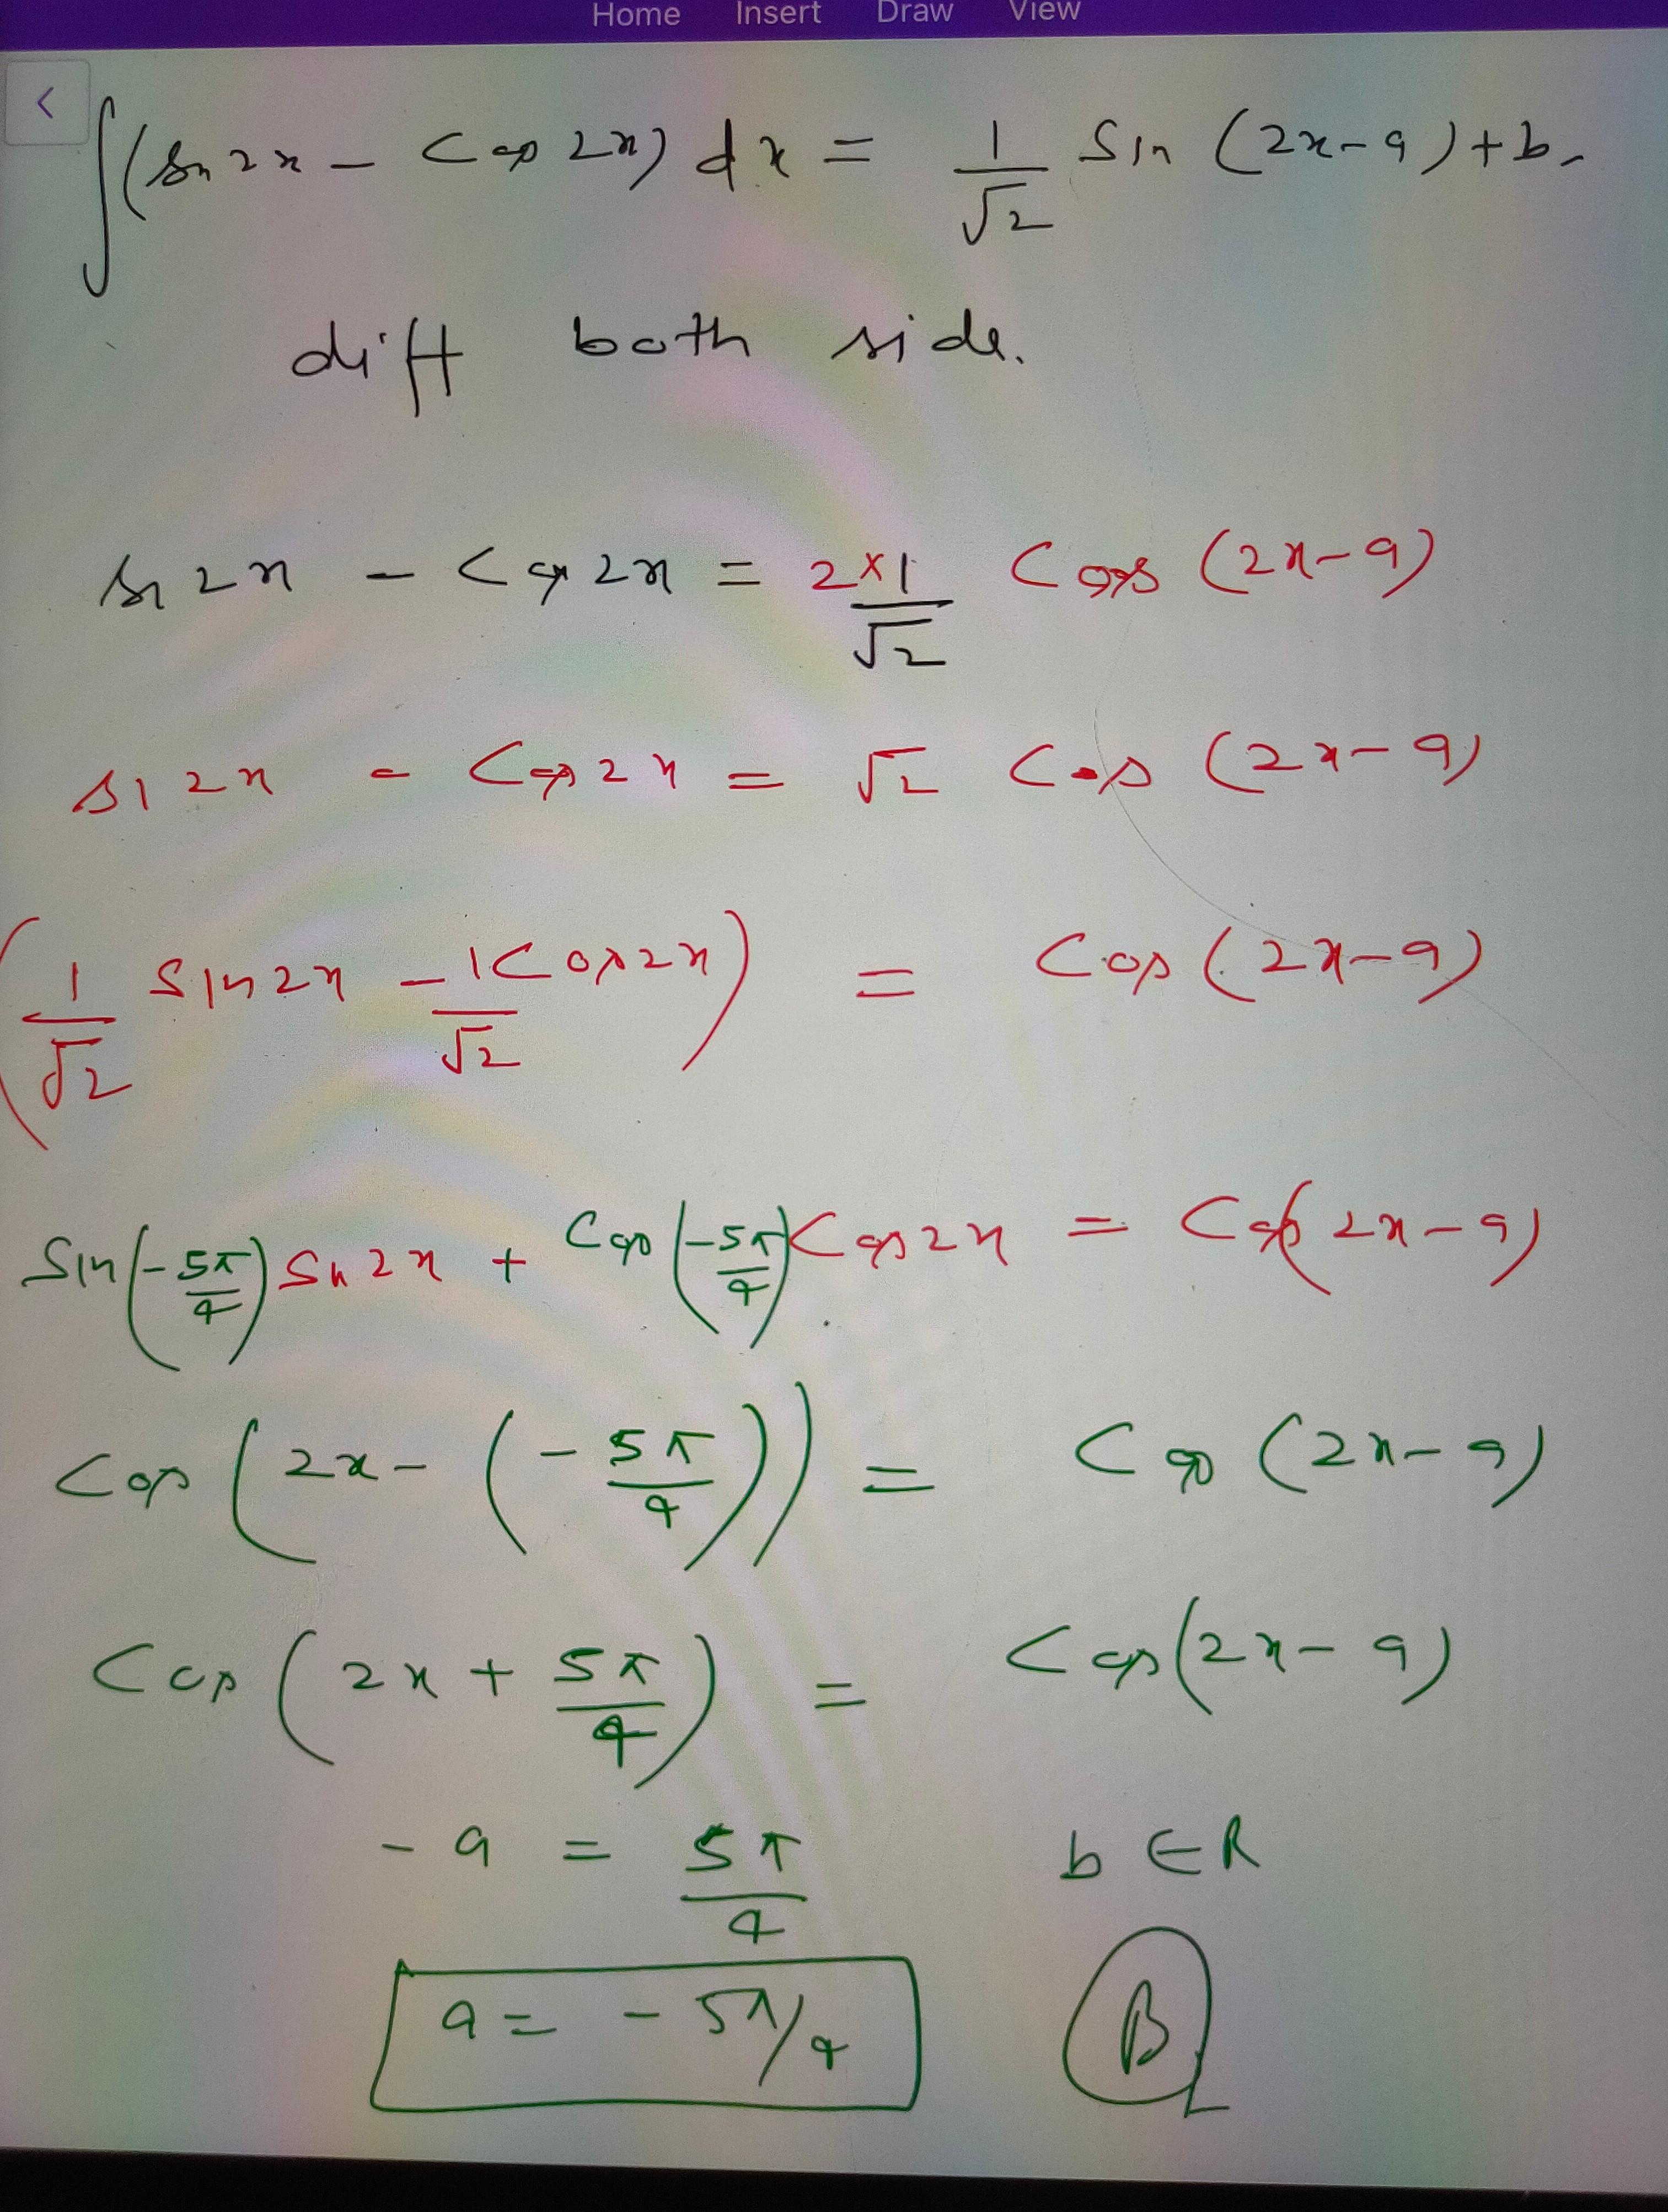 Home Insert Draw View
<
∫(sin 2x – Cos 2x) dx = 1/√2 Sin (2x-a)+b
diff both side.
sin 2x – Cos 2x = 2×1/√2 Cos (2x-a)
sin 2x - Cos 2x = √2 Cos (2x-a)
(1/√2 Sin 2x – 1/√2 Cos 2x) = Cos (2x-a)
Sin(-5π/4) Sin 2x + Cos(-5π/4) Cos 2x = Cos(2x-a)
Cos (2x-(-5π/4)) = Cos (2x-a)
Cos (2x+5π/4) = Cos(2x-a)
-a = 5π/4 b ∈ R
a = -5π/4 B